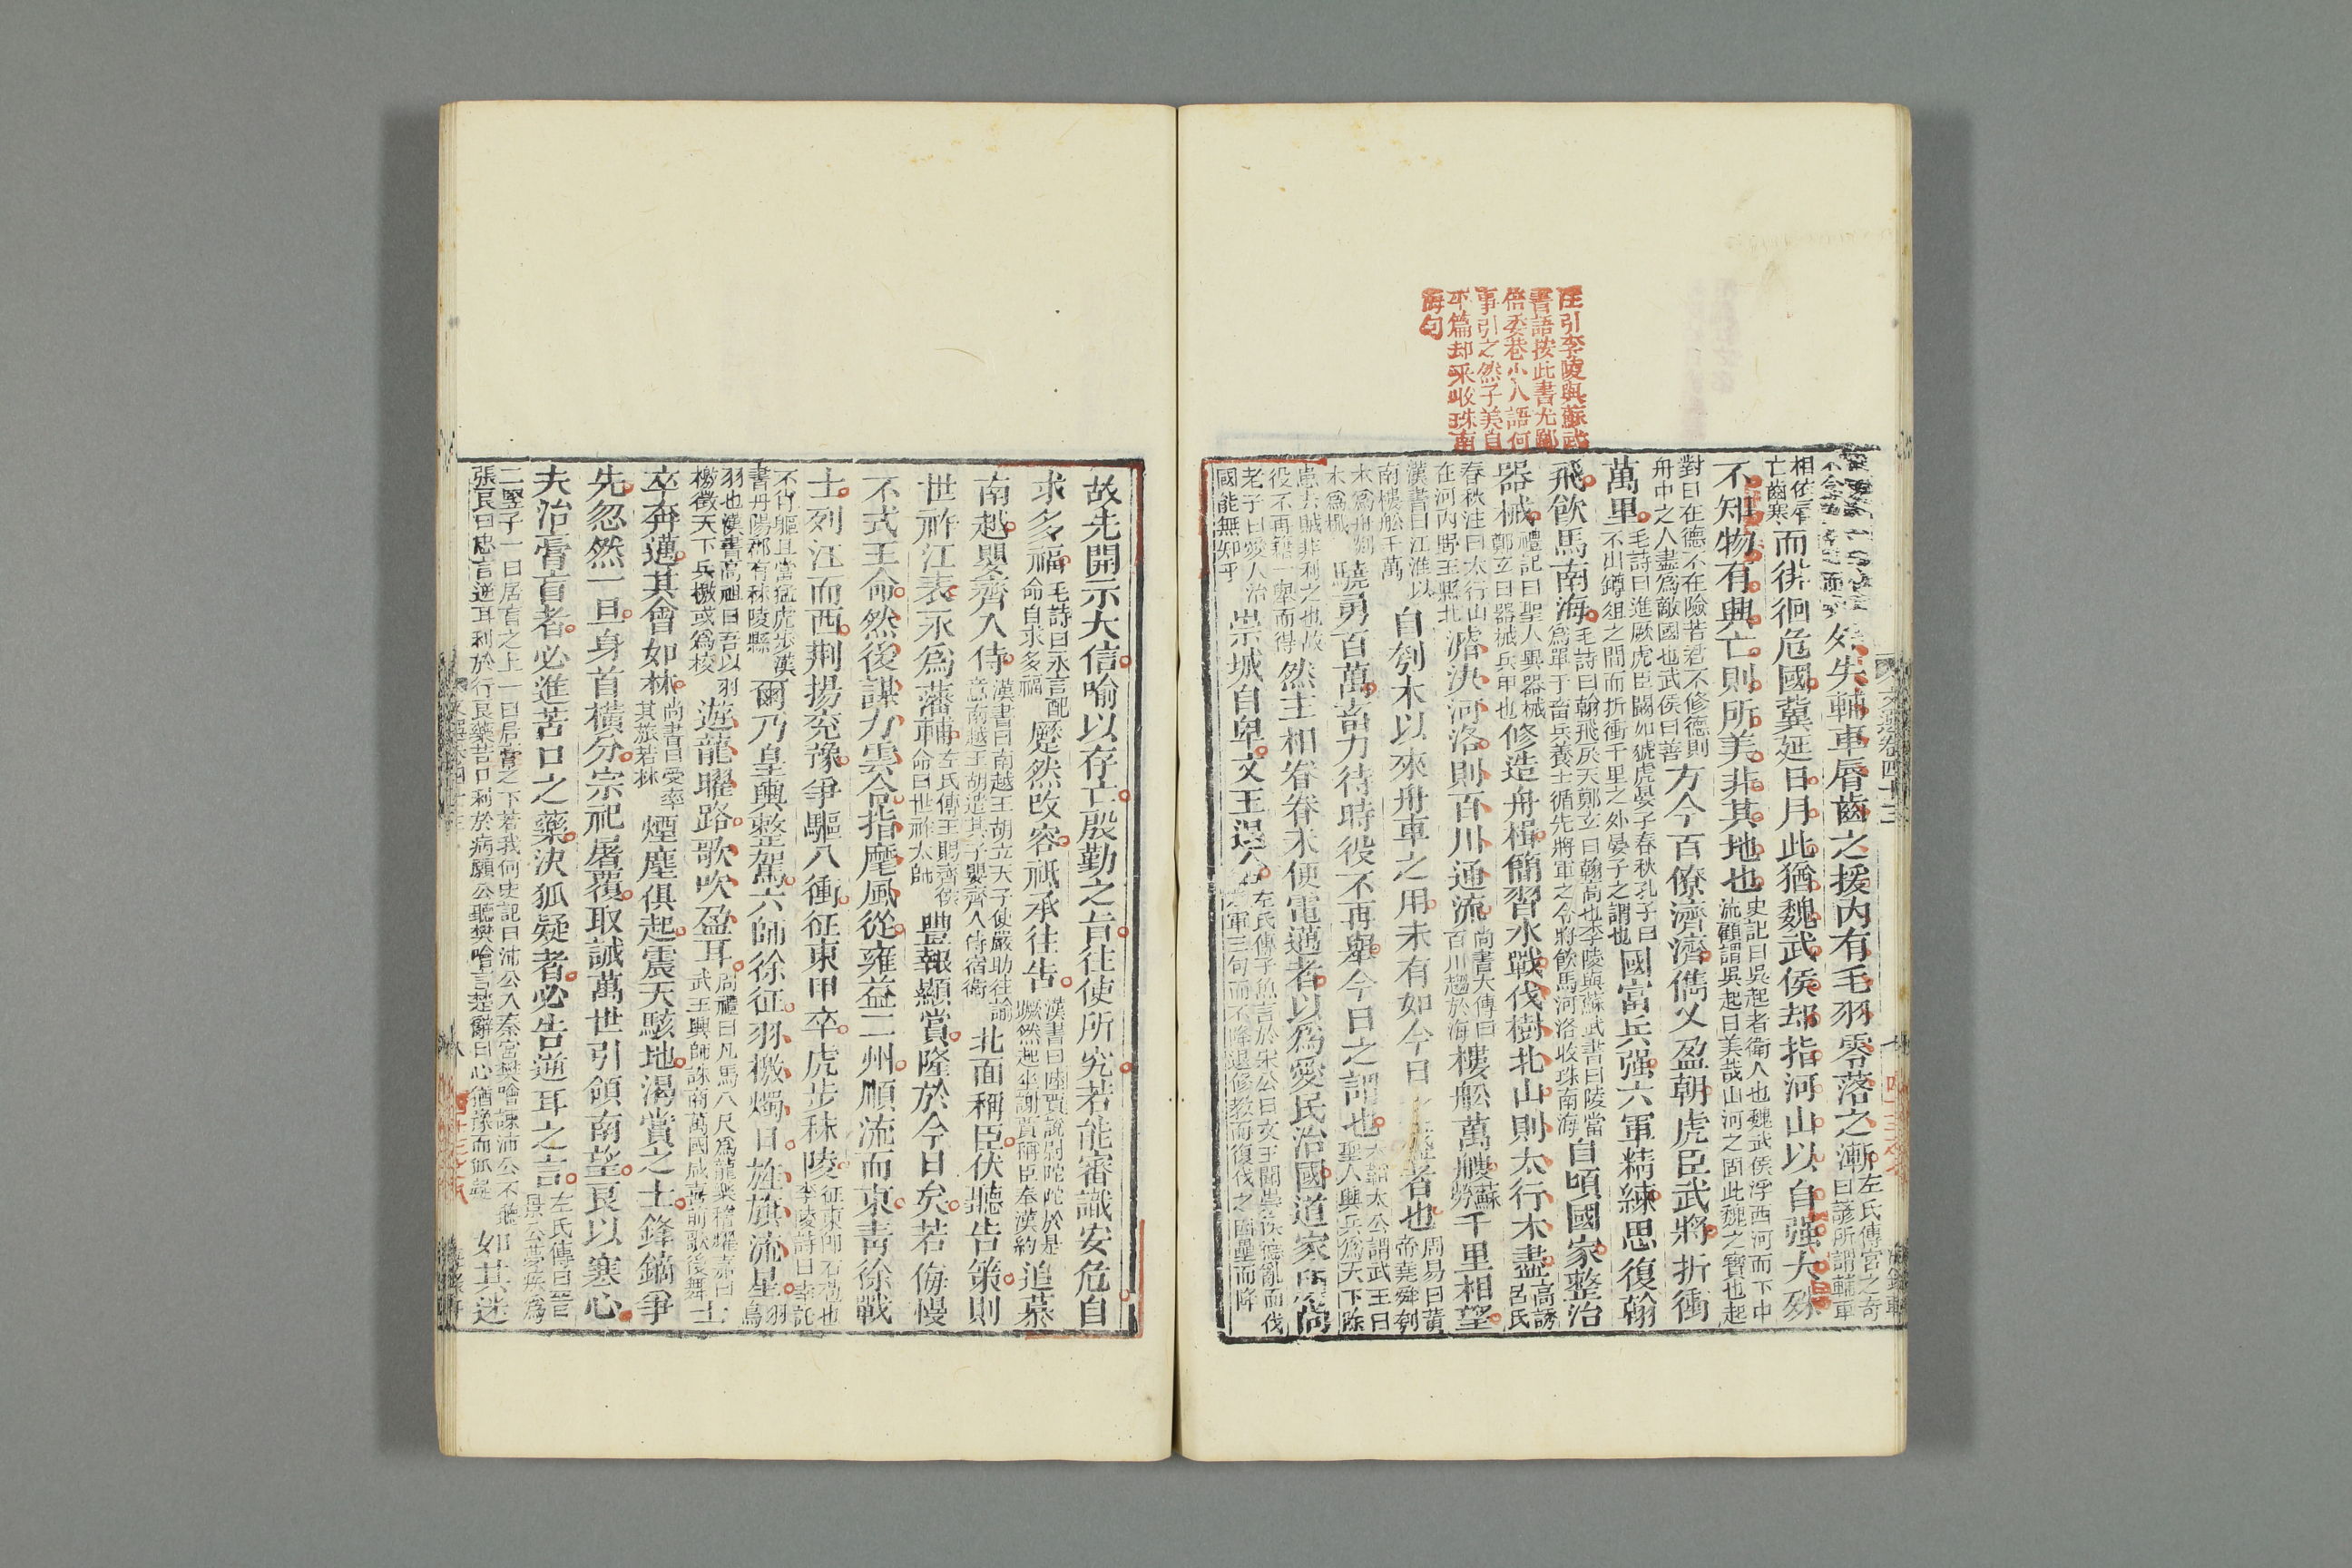 注引李陵與蘇武
書語按此書尤鄙
倍委巷小人語何
事引之然子美自
不篇却采收珠南
海句
文選卷四十三
外失輔車脣齒之援內有毛羽零落之漸左氏傳宮之奇曰諺所謂輔車
相依脣亡齒寒而徘徊危國冀延日月此猶魏武侯却指河山以自强大殊
不知物有興亡則所美非其地也史記曰吳起者衛人也魏武侯浮西河而下中流顧謂吳起曰美哉山河之固此魏之寶也起
對曰在德不在險若君不修德則舟中之人盡爲敵國也武侯曰善方今百僚濟濟儁乂盈朝虎臣武將折衝
萬里毛詩曰進厥虎臣闞如虓虎晏子春秋孔子曰不出罇俎之間而折衝千里之外晏子之謂也國富兵强六軍精練思復翰
飛飲馬南海毛詩曰翰飛戾天鄭玄曰翰高也李陵與蘇武書曰陵當爲單于畜兵養士循先將軍之令將飲馬河洛收珠南海自頃國家整治
器械禮記曰聖人異器械鄭玄曰器械兵甲也修造舟楫簡習水戰伐樹北山則太行木盡高誘呂氏
春秋注曰太行山在河內野王縣北濬決河洛則百川通流尚書大傳曰百川趨於海樓舩萬艘千里相望
漢書曰江淮以南樓舩千萬艘自刳木以來舟車之用未有如今日之盛者也周易曰黃帝堯舜刳
木爲舟剡木爲楫驍勇百萬畜力待時役不再舉今日之謂也太公謂武王曰聖人興兵爲天下除
患去賊非利之也故役不再籍一舉而得然主相眷眷未便電邁者以爲愛民治國道家所尚
老子曰愛人治國能無知乎崇城自卑文王退舍左氏傳子魚言於宋公曰文王聞崇德亂而伐之軍三旬而不降退修教而復伐之因壘而降
故先開示大信喻以存亡殷勤之旨往使所究若能審識安危自
求多福毛詩曰永言配命自求多福蹷然改容祗承往告漢書曰陸賈說尉陀陀於是蹶然起坐謝賈稱臣奉漢約追慕
南越嬰齊入侍漢書曰南越王胡立天子使嚴助往諭意南越王胡遣其子嬰齊入侍宿衛北面稱臣伏聽告策則
世祚江表永爲藩輔左氏傳王賜齊侯命曰世祚太師豐報顯賞隆於今日矣若侮慢
不式王命然後謀力雲合指麾風從雍益二州順流而東青徐戰
士列江而西荆揚兗豫爭驅八衝征東甲卒虎步秣陵征東卽石苞也李陵詩曰幸託
不肖軀且當猛虎步漢書丹陽郡有秣陵縣爾乃皇輿整駕六師徐征羽檄燭日旌旗流星
羽也漢書高祖曰吾以羽檄徵天下兵遊龍曜路歌吹盈耳周禮曰凡馬八尺爲龍武王興師誅商萬國咸喜前歌後舞士
卒奔邁其會如林尚書曰受率其旅若林煙塵俱起震天駭地渴賞之士鋒鏑爭
先忽然一旦身首橫分宗祀屠覆取誡萬世引領南望良以寒心
夫治膏肓者必進苦口之藥決狐疑者必告逆耳之言左氏傳曰晉景公夢疾爲
二豎子一曰居肓之上一曰居膏之下若我何史記曰沛公入秦宮樊噲諫沛公不聽張良曰忠言逆耳利於行良藥苦口利於病願公聽樊噲言楚辭曰心猶豫而狐疑如其迷